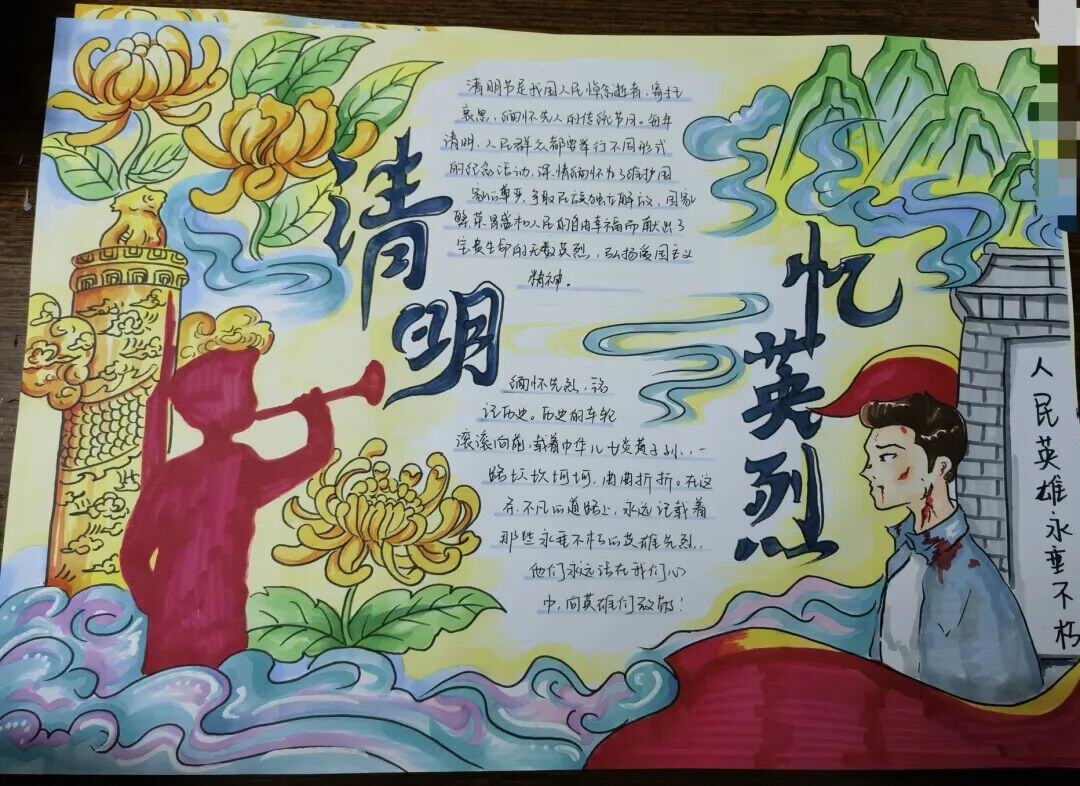 清明
忆英烈
清明节是我国人民悼念逝者、寄托
哀思、缅怀先人的传统节日。每年
清明，人民群众都要举行不同形式
的纪念活动，深情缅怀为了维护国
家的尊严，争取民族独立解放，国家
繁荣昌盛和人民的自由幸福而献出了
宝贵生命的无数英烈，弘扬爱国主义
精神。
缅怀先烈，铭
记历史。历史的车轮
滚滚向前，载着中华儿女炎黄子孙，一
路坎坎坷坷，曲曲折折。在这
条不凡的道路上，永远记载着
那些永垂不朽的英雄先烈，
他们永远活在我们心
中，向英雄们致敬！
人民英雄永垂不朽